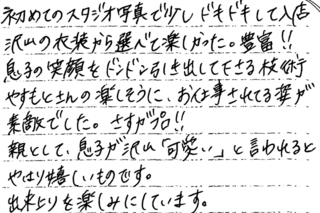 初めてのスタジオ写真で少しドキドキして入店
沢山の衣装から選べて楽しかった。豊富!!
息子の笑顔をドンドン引き出して下さる技術
やすもとさんの楽しそうに、お仕事されてる姿が
素敵でした。さすがプロ!!
親として、息子が沢山「可愛い」と言われると
やはり嬉しいものです。
出来上りを楽しみにしています。